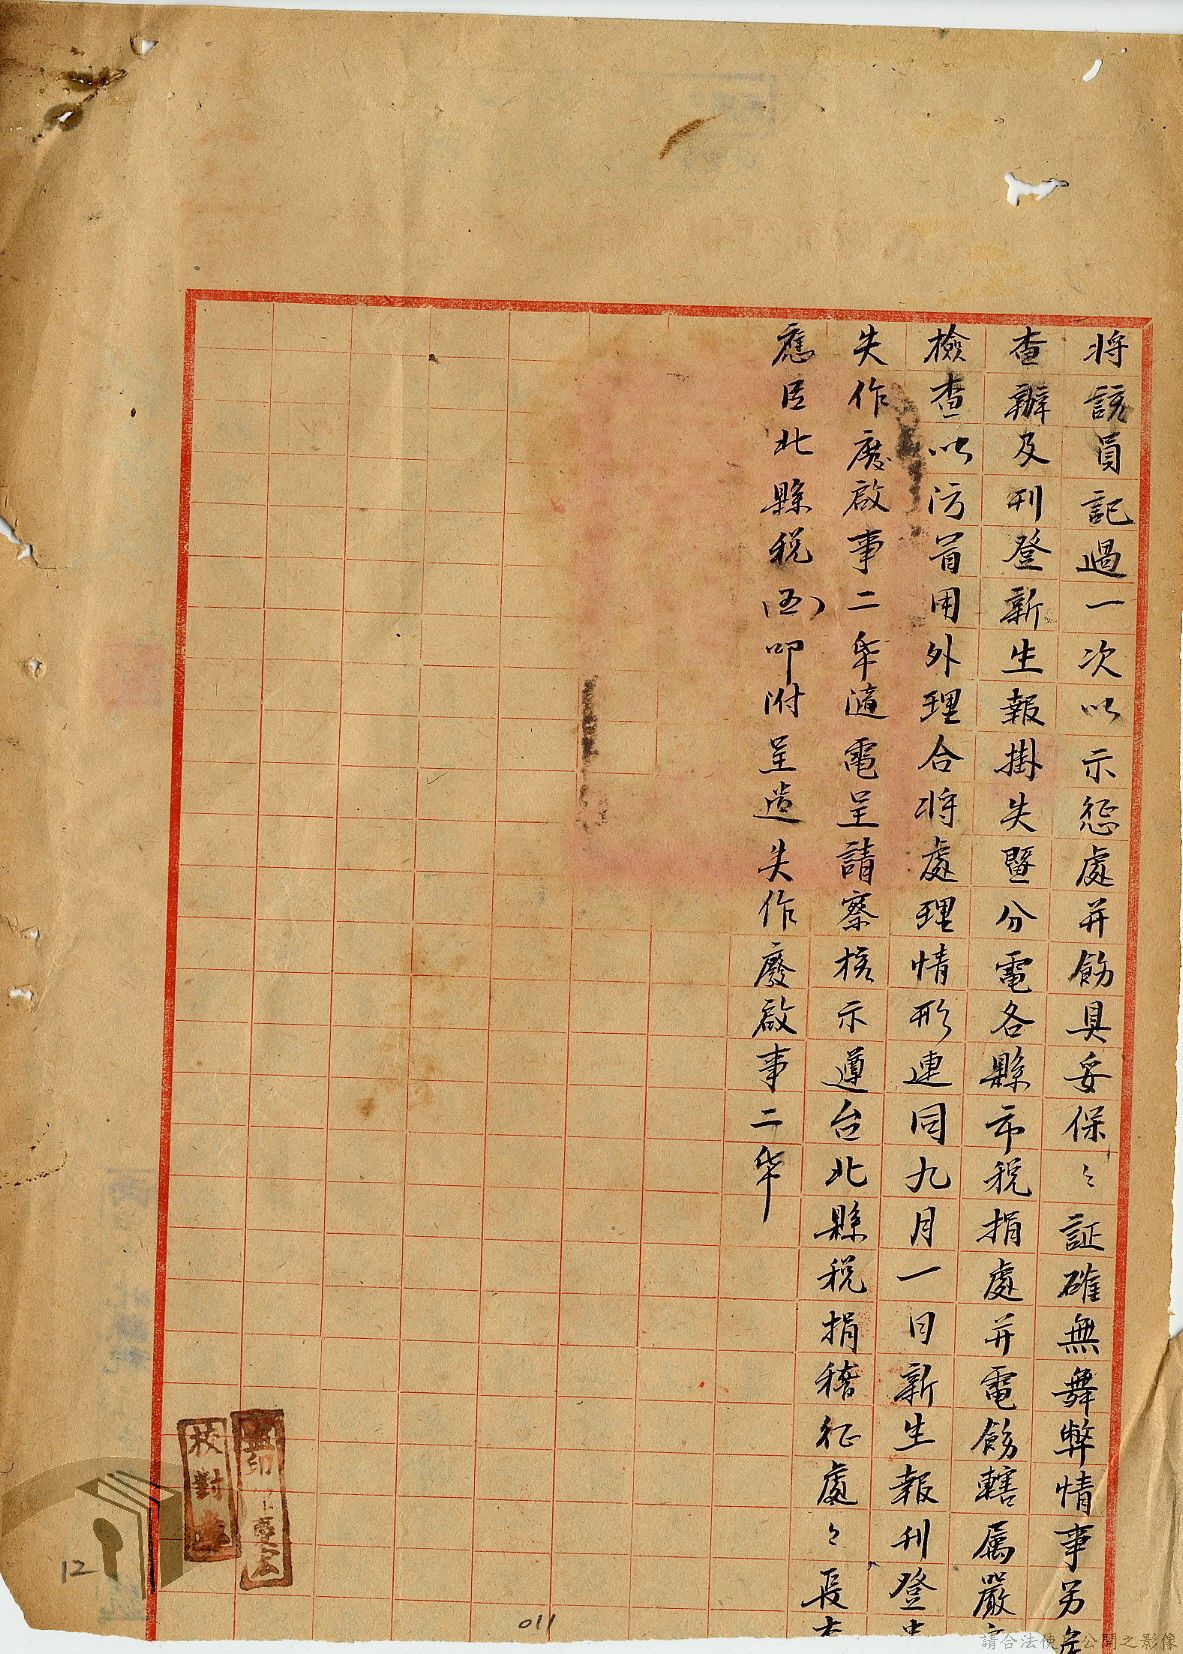 将該員記過一次以示惩處并飭具妥保〻証確無舞弊情事另
查辦及刊登新生報掛失暨分電各縣市税捐處并電飭轄属嚴
檢查以防冒用外理合将處理情形連同九月一日新生報刊登
失作废啟事二帋隨電呈請察核示遵台北縣税捐稽征處〻長
應申北縣税(四)叩附呈遗失作廢啟事二帋
監印
校對
12
011
請合法使 公開之影像